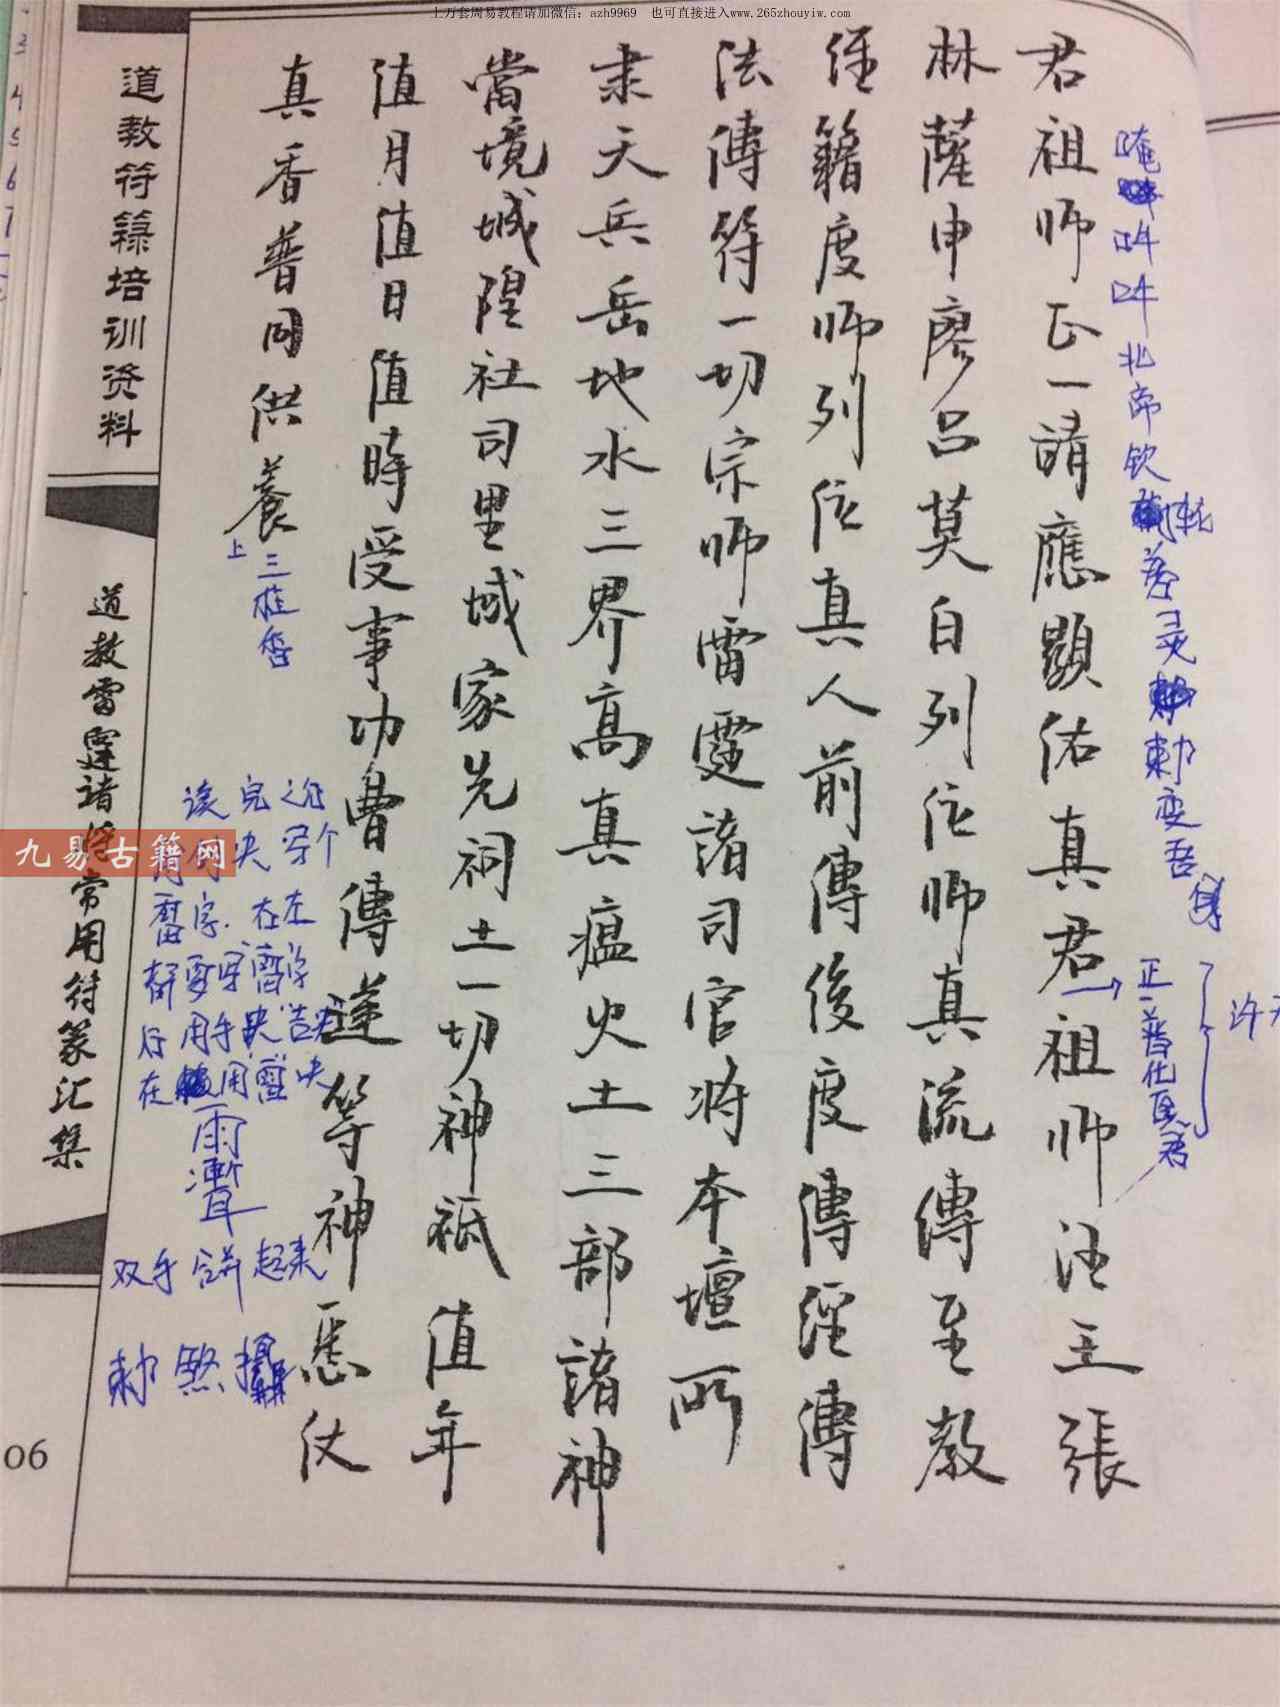 上万套周易教程请加微信：azh9969　也可直接进入www.265zhouyiw.com
君祖师正一靖應顯佑真君祖师法主張
林薩申廖吕莫白列位师真流傳至教
經籍度师列位真人前傳後度傳經傳
法傳符一切宗师雷霆諸司官将本壇所
隶天兵岳地水三界高真瘟火土三部諸神
當境城隍社司里域家先祠土一切神祇值年
值月值日值時受事功曹傳遞等神悉仗
真香普同供養
上三柱香
北帝钦
灵
敕变吾身
正一普化真君
双手合并起来
敕煞攝
道教符籙培训资料
道教雷霆诸将常用符篆汇集
九易古籍网
06